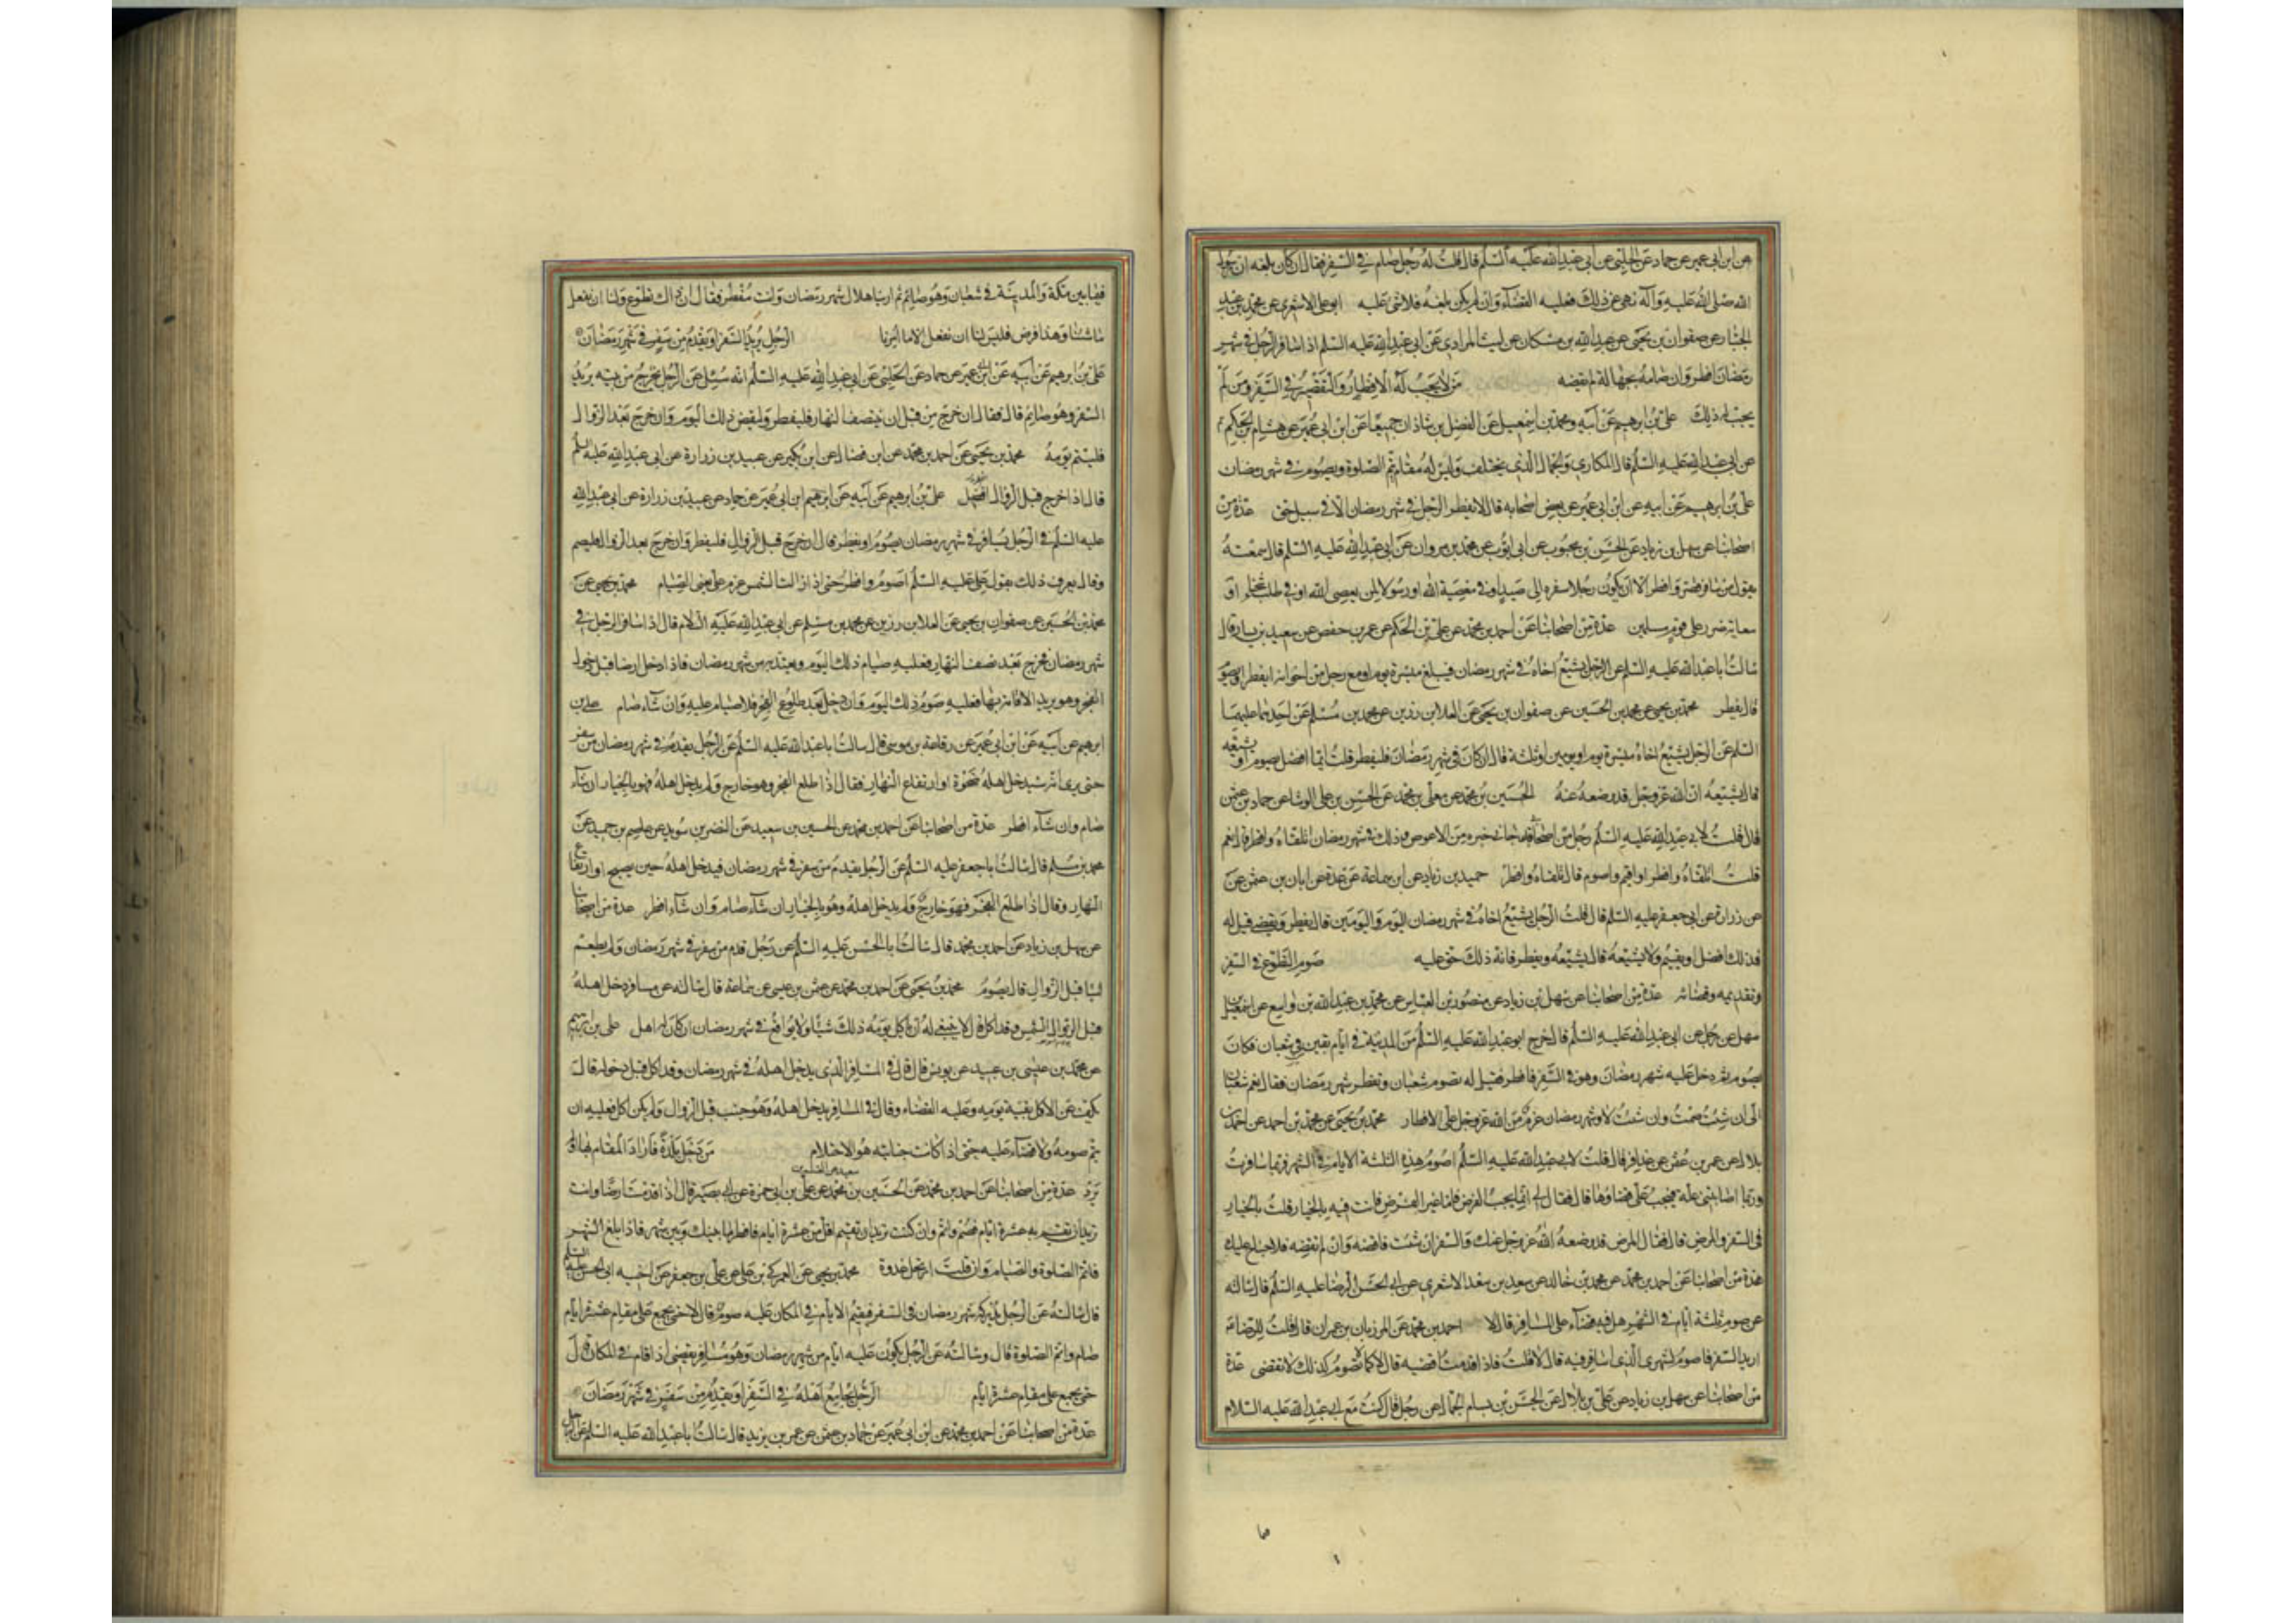 عن ابن ابى عمير عن حماد عن الحلبى عن ابى عبد الله عليه السلم قال قلت له رجل صام فى السفر فقال ان كان بلغه ان رسول
الله صلى الله عليه وآله نهى عن ذلك فعليه القضآء وان لم يكن بلغه فلا شئ عليه ابو على الاشعرى عن محمد بن عبد
الجبار عن صفوان بن يحيى عن عبد الله بن مسكان عن ليث المرادى عن ابى عبد الله عليه السلم اذا سافر الرجل فى شهر
رمضان افطر وان صامه بجهالة لم يقضه من لا يجب له الافطار والتقصير فى السفر ومن لم
يجب له ذلك على بن ابرهيم عن ابيه ومحمد بن اسمعيل عن الفضل بن شاذان جميعا عن ابن ابى عمير عن هشام بن الحكم
عن ابى عبد الله عليه السلم قال المكارى والجمال الذى يختلف وليس له مقام يتم الصلوة ويصوم فى شهر رمضان
على بن ابرهيم عن ابيه عن ابن ابى عمير عن بعض اصحابه قال لا يفطر الرجل فى شهر رمضان الا فى سبيل حق عدة من
اصحابنا عن سهل بن زياد عن الحسن بن محبوب عن ابى ايوب عن محمد بن مروان عن ابى عبد الله عليه السلم قال سمعته
يقول من سافر قصر وافطر الا ان يكون رجلا سفره الى صيد او فى معصية الله او رسولا لمن يعصى الله او فى طلب شحناء او
سعاية ضرر على قوم مسلمين عدة من اصحابنا عن احمد بن محمد عن على بن الحكم عن عمر بن حفص عن سعيد بن يسار قال
سالت ابا عبد الله عليه السلم عن الرجل يشيع اخاه فى شهر رمضان فيبلغ مسيرة يوم او مع رجل من اخوانه ايفطر او يصوم
قال يفطر محمد بن يحيى عن محمد بن الحسين عن صفوان بن يحيى عن العلا بن رزين عن محمد بن مسلم عن احدهما عليهما
السلم عن الرجل يشيع اخاه مسيرة يوم او يومين او ثلثة قال ان كان فى شهر رمضان فليفطر قلت ايما افضل يصوم او يشيعه
قال يشيعه ان الله عز وجل قد وضعه عنه الحسين بن محمد عن معلى بن محمد عن الحسن بن على الوشا عن حماد بن عثمن
قال قلت لابى عبد الله عليه السلم رجل من اصحابنا قد جانى خبره من الاعوص وذلك فى شهر رمضان اتلقاه وافطر قال نعم
قلت اتلقاه وافطر او اقيم واصوم قال تلقاه وافطر حميد بن زياد عن ابن سماعة عن عدة عن ابان بن عثمن عن
عن زرارة عن ابى جعفر عليه السلم قال قلت الرجل يشيع اخاه فى شهر رمضان اليوم واليومين قال يفطر ويقضى قيل له
فذلك افضل او يقيم ولا يشيعه قال يشيعه ويفطر فان ذلك حق عليه صوم التطوع فى السفر
وتقديمه وقضائه عدة من اصحابنا عن سهل بن زياد عن منصور بن العباس عن محمد بن عبد الله بن واسع عن اسمعيل بن
سهل عن رجل عن ابى عبد الله عليه السلم قال خرج ابو عبد الله عليه السلم من المدينة فى ايام بقين من شعبان فكان
يصوم ثم دخل عليه شهر رمضان وهو فى السفر فافطر فقيل له تصوم شعبان وتفطر شهر رمضان فقال نعم شعبان
الى ان شئت صمت وان شئت لا وشهر رمضان عزم من الله عز وجل على الافطار محمد بن يحيى عن محمد بن احمد عن احمد بن
بلال عن عمر بن عثمن عن عذافر قال قلت لابى عبد الله عليه السلم اصوم هذه الثلثة الايام فى الشهر فربما سافرت
وربما اصابتنى علة فيجب على قضاؤها قال فقال لى انما يجب الفرض فاما غير الفرض فانت فيه بالخيار قلت بالخيار
فى السفر والمرض قال فقال المرض قد وضعه الله عز وجل عنك والسفر ان شئت فاقضه وان لم تقضه فلا جناح عليك
عدة من اصحابنا عن احمد بن محمد عن محمد بن خالد عن سعد بن سعد الاشعرى عن ابى الحسن الرضا عليه السلم قال سالته
عن صوم ثلثة ايام فى الشهر هل فيه قضآء على المسافر قال لا احمد بن محمد عن المرزبان بن عمران قال قلت للرضا
اريد السفر فاصوم لشهرى الذى اسافر فيه قال لا قلت فاذا قدمت اقضيه قال لا كما لا تصوم كذلك لا تقضى عدة
من اصحابنا عن سهل بن زياد عن على بن بلال عن الحسن بن بسام الجمال عن رجل قال كنت مع ابى عبد الله عليه السلام
فيما بين مكة والمدينة فى شعبان وهو صائم ثم اريناهلال شهر رمضان وانت مفطر فقال ان ذاك تطوع ولنا ان نفعل
ما شئنا وهذا فرض فليس لنا ان نفعل الا ما امرنا الرجل يريد السفر او يقدم من سفر فى شهر رمضان
على بن ابرهيم عن ابيه عن ابن ابى عمير عن حماد عن الحلبى عن ابى عبد الله عليه السلم انه سئل عن الرجل يخرج من بيته يريد
السفر وهو صائم قال فقال ان خرج من قبل ان ينتصف النهار فليفطر وليقض ذلك اليوم وان خرج بعد الزوال
فليتم يومه محمد بن يحيى عن احمد بن محمد عن ابن فضال عن ابن بكير عن عبيد بن زرارة عن ابى عبد الله عليه السلم
قال اذا خرج قبل الزوال على بن ابرهيم عن ابيه عن ابرهيم ابن ابى عمير عن حماد عن عبيد بن زرارة عن ابى عبد الله
عليه السلم فى الرجل يسافر فى شهر رمضان يصوم او يفطر قال ان خرج قبل الزوال فليفطر وان خرج بعد الزوال فليصم
وقال يعرف ذلك بقول على عليه السلم اصوم وافطر حتى اذا زالت الشمس عزم على يعنى الصيام محمد بن يحيى عن
محمد بن الحسين عن صفوان بن يحيى عن العلا بن رزين عن محمد بن مسلم عن ابى عبد الله عليه السلام قال اذا سافر الرجل فى
شهر رمضان فخرج بعد نصف النهار فعليه صيام ذلك اليوم ويعتد به من شهر رمضان فاذا دخل ارضا قبل طلوع
الفجر وهو يريد الاقامة بها فعليه صوم ذلك اليوم وان دخل بعد طلوع الفجر فلا صيام عليه وان شآء صام على بن
ابرهيم عن ابيه عن ابن ابى عمير عن رفاعة بن موسى قال سالت ابا عبد الله عليه السلم عن الرجل يقدم فى شهر رمضان من سفر
حتى يرى انه سيدخل اهله ضحوة او ارتفاع النهار فقال اذا طلع الفجر وهو خارج ولم يدخل اهله فهو بالخيار ان شآء
صام وان شآء افطر عدة من اصحابنا عن احمد بن محمد عن الحسين بن سعيد عن النضر بن سويد عن عاصم بن حميد عن
محمد بن مسلم قال سالت ابا جعفر عليه السلم عن الرجل يقدم من سفر فى شهر رمضان فيدخل اهله حين يصبح او ارتفاع
النهار وقال اذا طلع الفجر فهو خارج ولم يدخل اهله وهو بالخيار ان شآء صام وان شآء افطر عدة من اصحابنا
عن سهل بن زياد عن احمد بن محمد قال سالت ابا الحسن عليه السلم عن رجل قدم من سفر فى شهر رمضان ولم يطعم
شيئا قبل الزوال قال يصوم محمد بن يحيى عن احمد بن محمد عن عثمن بن عيسى عن سماعة قال سالته عن مسافر دخل اهله
قبل الزوال وقد اكل قال لا ينبغى له ان ياكل يومه ذلك شيئا ولا يواقع فى شهر رمضان ان كان له اهل على بن ابرهيم
عن محمد بن عيسى بن عبيد عن يونس قال قال فى المسافر الذى يدخل اهله فى شهر رمضان وقد اكل قبل دخوله قال
يكف عن الاكل بقية يومه وعليه القضاء وقال فى المسافر يدخل اهله وهو جنب قبل الزوال ولم يكن اكل فعليه ان
يتم صومه ولا قضآء عليه حتى اذا كانت جنابته هو الاحتلام من دخل بلدة فاراد المقام بها او لم
يرد عدة من اصحابنا عن احمد بن محمد عن الحسين بن محمد عن على بن ابى حمزة عن ابى بصير قال اذا قدمت ارضا وانت
تريد ان تقيم بها عشرة ايام فصم واتم وان كنت تريد ان تقيم اقل من عشرة ايام فافطر ما بينك وبين شهر فاذا بلغ الشهر
فاتم الصلوة والصيام وان قلت ارتحل غدوة محمد بن يحيى عن العمركى بن على عن على بن جعفر عن اخيه ابى الحسن عليه السلم
قال سالته عن الرجل يدركه شهر رمضان فى السفر فيقيم الايام فى المكان عليه صوم قال لا حتى يجمع على مقام عشرة ايام
صام واتم الصلوة قال وسالته عن الرجل يكون عليه ايام من شهر رمضان وهو مسافر يقضى اذا اقام فى المكان قال لا
حتى يجمع على مقام عشرة ايام الرجل يجامع اهله فى السفر او يقدم من سفر فى شهر رمضان
عدة من اصحابنا عن احمد بن محمد عن ابن ابى عمير عن حماد بن عثمن عن عمر بن يزيد قال سالت ابا عبد الله عليه السلم عن الرجل